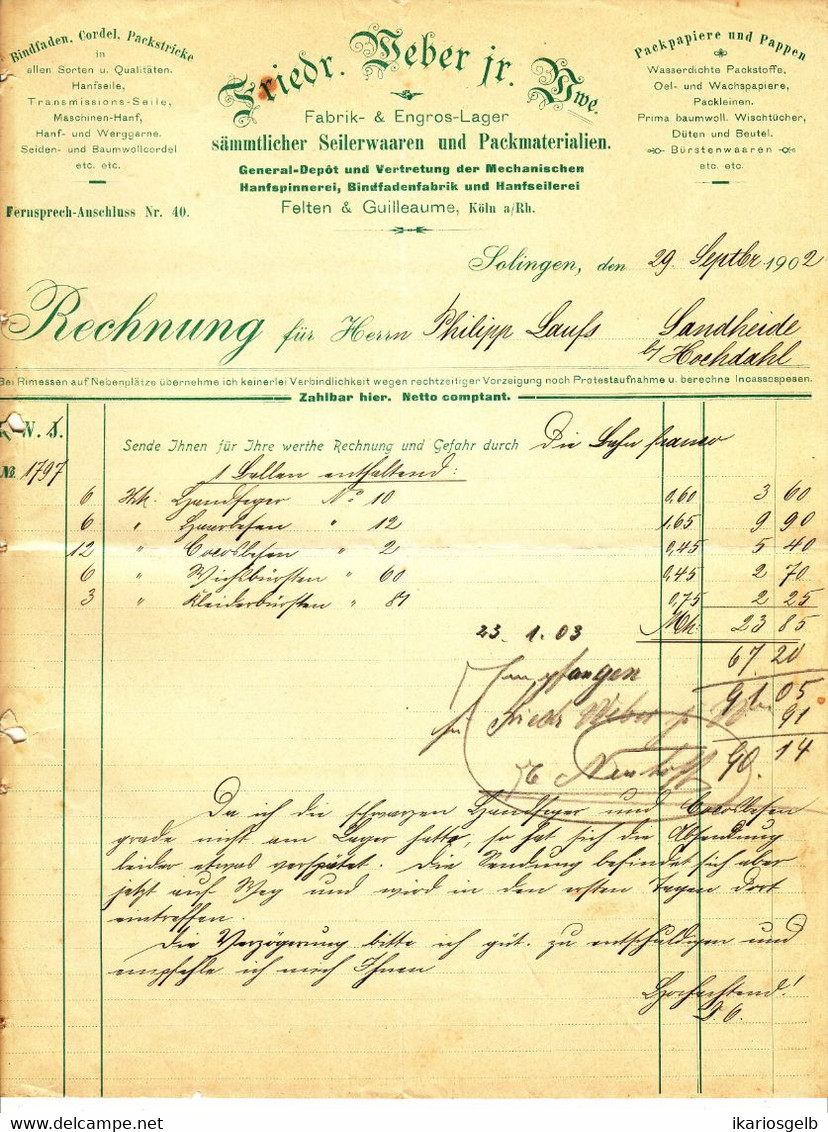 Bindfaden, Cordel, Packstricke
in
allen Sorten u. Qualitäten.
Hanfseile,
Transmissions-Seile,
Maschinen-Hanf,
Hanf- und Werggarne.
Seiden- und Baumwollcordel
etc. etc.
Fernsprech-Anschluss Nr. 40.
Friedr. Weber jr. Wwe.
Fabrik- & Engros-Lager
sämmtlicher Seilerwaaren und Packmaterialien.
General-Depôt und Vertretung der Mechanischen
Hanfspinnerei, Bindfadenfabrik und Hanfseilerei
Felten & Guilleaume, Köln a/Rh.
Packpapiere und Pappen
Wasserdichte Packstoffe,
Oel- und Wachspapiere,
Packleinen.
Prima baumwoll. Wischtücher,
Düten und Beutel.
Bürstenwaaren
etc. etc.
Solingen, den 29. Septbr 1902
Rechnung für Herrn Philipp Laufs Sandheide
b/ Hochdahl
Bei Rimessen auf Nebenplätze übernehme ich keinerlei Verbindlichkeit wegen rechtzeitiger Vorzeigung noch Protestaufnahme u. berechne Incassospesen.
Zahlbar hier. Netto comptant.
W. J.
Sende Ihnen für Ihre werthe Rechnung und Gefahr durch die Bahn franco
No. 1797
1 Ballen enthaltend:
6 Stk. Handfeger No 10 0,60 3 60
6 " Haarbesen " 12 1,65 9 90
12 " Cocosbesen " 2 0,45 5 40
6 " Wichsbürsten " 60 0,45 2 70
3 " Kleiderbürsten " 81 0,75 2 25
Mk. 23 85
23. 1. 03
67 20
Empfangen
91 05
für Friedr. Weber jr. Wwe
91
90. 14
Da ich die schwarzen Handfeger und Cocosbesen
grade nicht am Lager hatte, so hat sich die Absendung
leider etwas verspätet. Die Sendung befindet sich aber
jetzt auf Weg und wird in den ersten Tagen dort
eintreffen.
Die Verzögerung bitte ich güt. zu entschuldigen und
empfehle ich mich Ihnen
Hochachtend!
D. O.
ikariosgelb